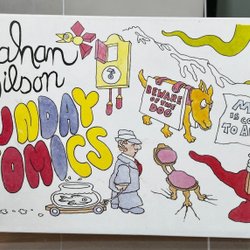 ahan
ilson
UNDAY
OMICS
BEWARE
OF THE
DOG
M
IS CO
TO A